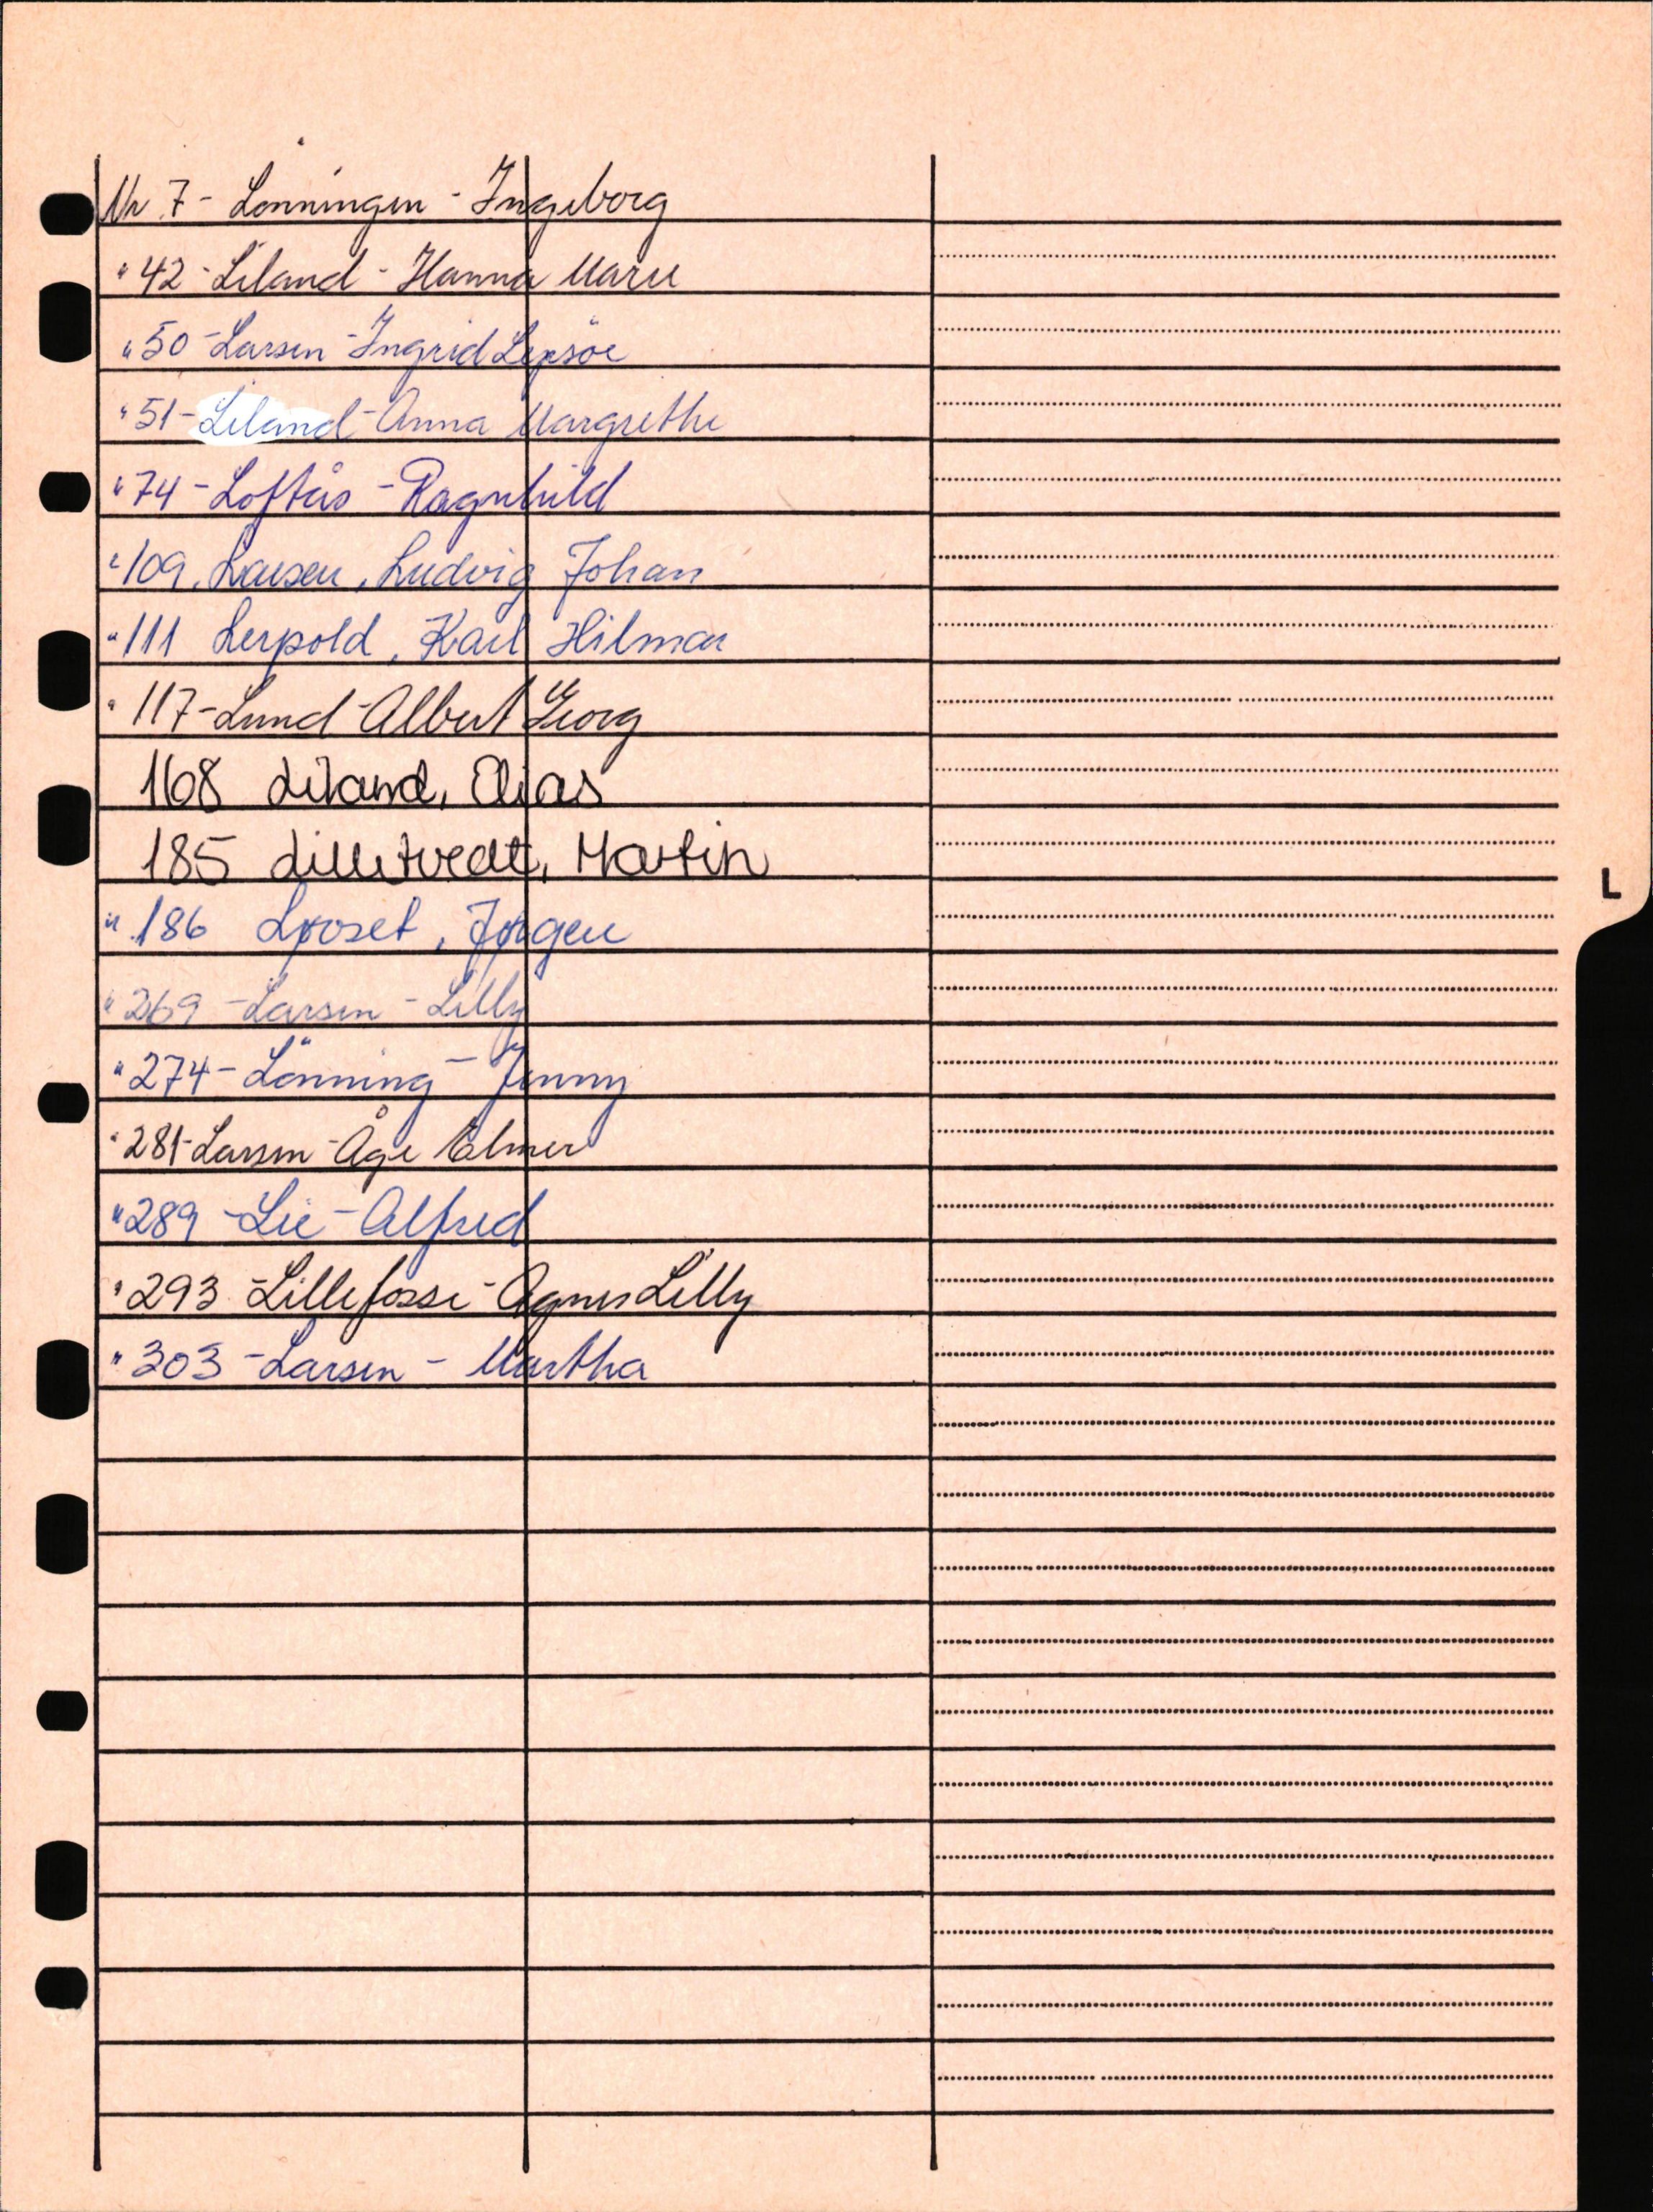 Nr 7 - Lönningen - Ingeborg
" 42 - Liland - Hanna Marie
" 50 - Larsen - Ingrid Lepsöe
" 51 - Liland - Anna Margrethe
" 74 - Loftås - Ragnhild
" 109, Larsen, Ludvig Johan
" 111 Lerpold, Karl Hilmar
" 117 - Lund - Albert Georg
168 Liland, Elias
185 Lilletvedt, Martin
L
" 186 Løoset, Jørgen
" 269 - Larsen - Lilly
" 274 - Lönning - Jenny
" 281 - Larsen - Åge Elmer
" 289 - Lie - Alfred
" 293 - Lillefosse - Agnes Lilly
" 303 - Larsen - Martha